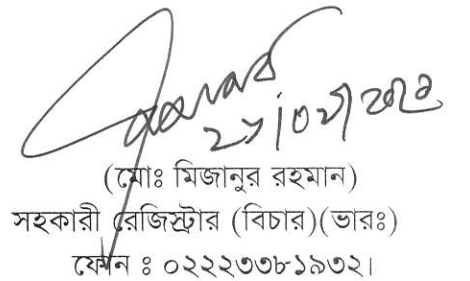 (মোঃ মিজানুর রহমান)
সহকারী রেজিস্ট্রার (বিচার)(ভারঃ)
ফোন ঃ ০২২২৩৩৮১৯৩২।